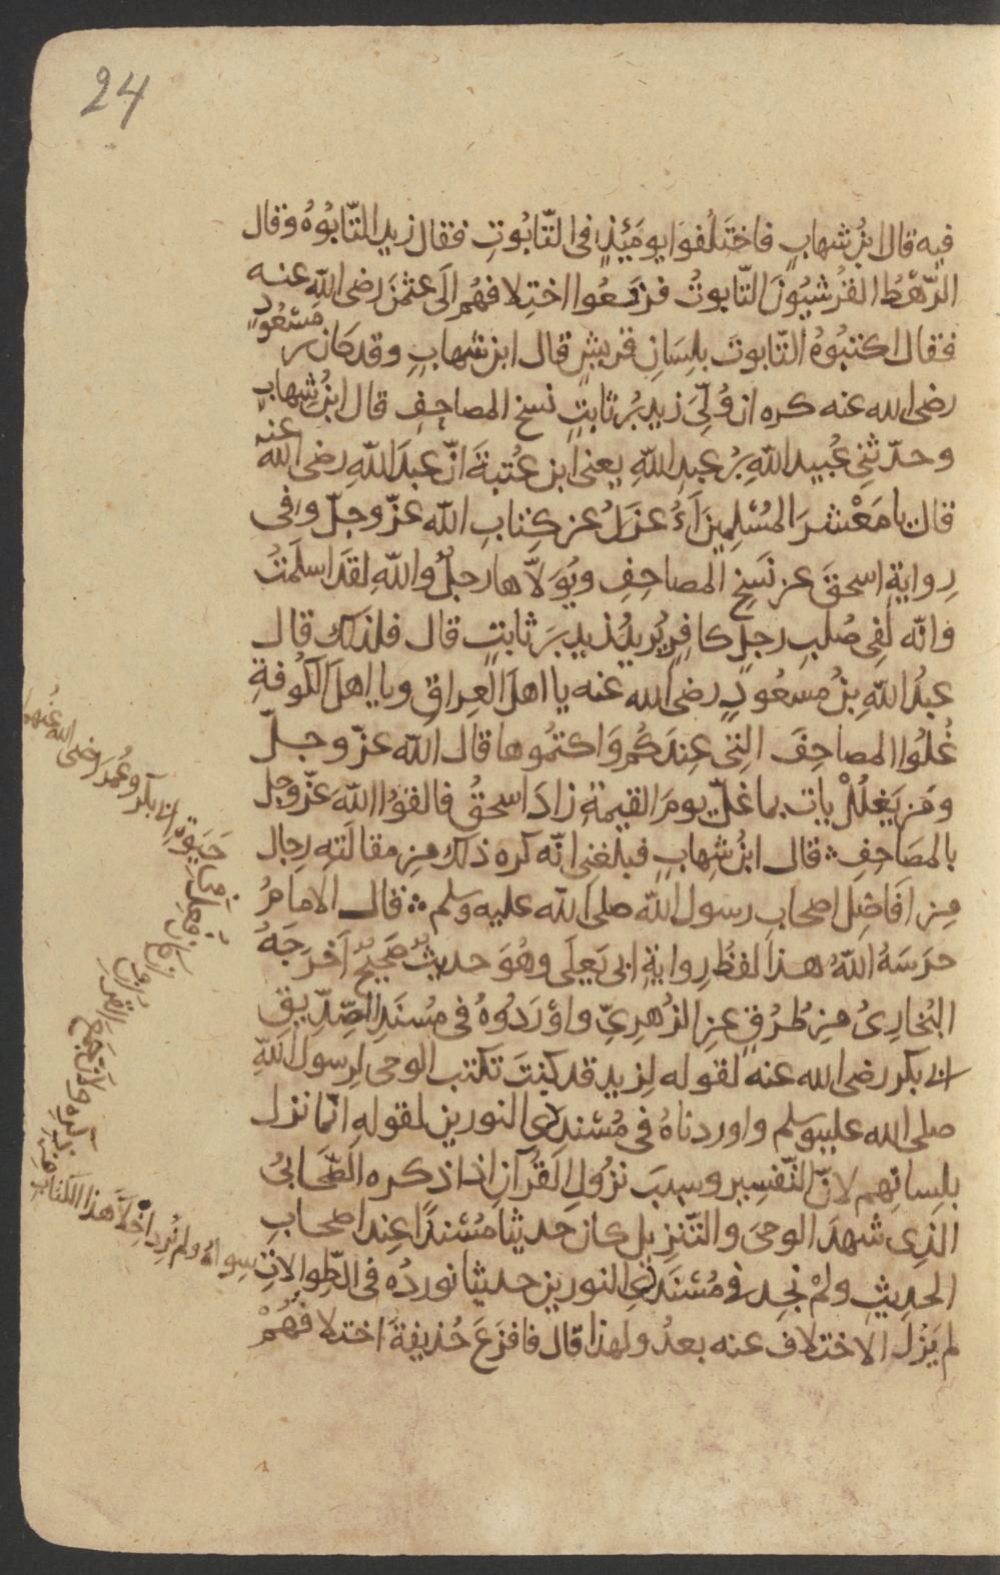 24
فيه قال ابنُ شهابٍ فاختَلفوا يومَئذٍ فى التّابُوتِ فقال زيد التّابُوهُ وقال
الرّهْطُ القُرشيُّونَ التّابوتُ فرَفعُوا اختِلافَهُم الَى عثمٰنَ رضى اللّه عنه
فقال اكتبُوهُ التّابوتَ بلِسَانِ قريشٍ قال ابن شهابٍ وقد كان ابن مسْعُودٍ
رضى الله عنه كره ان وُلِّىَ زيدُ بنُ ثابتٍ نسخ المصاحِفِ قال ابنُ شِهابٍ
وحدّثنِى عُبيد اللّهِ بنُ عبدِ اللّهِ يعنى ابن عُتبةَ انّ عبدَ اللّهِ رضى اللّه عنه
قال يا مَعْشرَ المُسْلِمِينَ أَءُعزَلُ عن كِتابِ اللّه عزّ وجلّ وفى
رِوايةِ اسحٰقَ عن نَسخِ المصاحِفِ ويُوَلاّها رجلٌ واللّهِ لقَد اسلَمتُ
وانّه لَفِى صُلبِ رجلٍ كافِرٍ يُريدُ زيدَ بنَ ثابتٍ قال فلذلك قال
عبدُ اللّهِ بنُ مسعُودٍ رضى الله عنه يا اهلَ العِراقِ ويا اهلَ الكُوفةِ
غُلُّوا المصاحِفَ التِى عِندَكُم وَاكتمُوها قال اللّه عزّ وجلّ
ومَن يَغلُلْ يأت بما غلّ يومَ القيمةِ زادَ اسحٰقُ فالقوُا اللّهَ عزّ وجل
بالمصَاحِفِ ؞ قال ابنُ شِهابٍ فبلغنِى انّه كره ذلك مِن مقالَتِهِ رِجال
مِن أفَاضِل اصحاب رسول اللّه صلى اللّه عليه وسلم ؞ قال الامامُ
حرَسَهُ اللّهُ هذا لفظُ رِوايةِ ابى يَعلَى وهُوَ حديثٌ صَحِيحٌ أخرَجَهُ
البُخارِىُ مِن طُرُقٍ عنِ الزُهرِىِّ واوْرَدُوهُ فى مسْنَدِ الصِّدّيقِ
ابى بكر رضى الله عنه لقوله لِزيدٍ قد كنتَ تكتب الوحى لِرسول اللّهِ
صلى الله عليه وسلم واوردناهُ فى مُسْندِ ذِى النورين لقولهِ انّما نزل
بلِسانِهِم لانّ التّفسِير وسببَ نزُولِ القُرآنِ اذا ذكره الصَّحَابىُ
الذِى شهدَ الوحىَ والتّنزِيل كان حديثًا مُسْندًا عِند اصحابِ
الحدِيثِ ولمْ نجِد فى مُسْنَدِ ذِى النورين حديثا نوردُه فى الطِوالاتِ
لم يَزُل الاختلاف عنه بعدُ ولهذا قال فافزَعَ حُذيفةَ اختلافُهُمْ
سِواهُ ولم نُرِد اخلاَء هذا الكتاب من ذِكره ولانّ جمع القرآن
حيَوةِ ابى بكر وعُمرَ رضى اللّه عَنهما